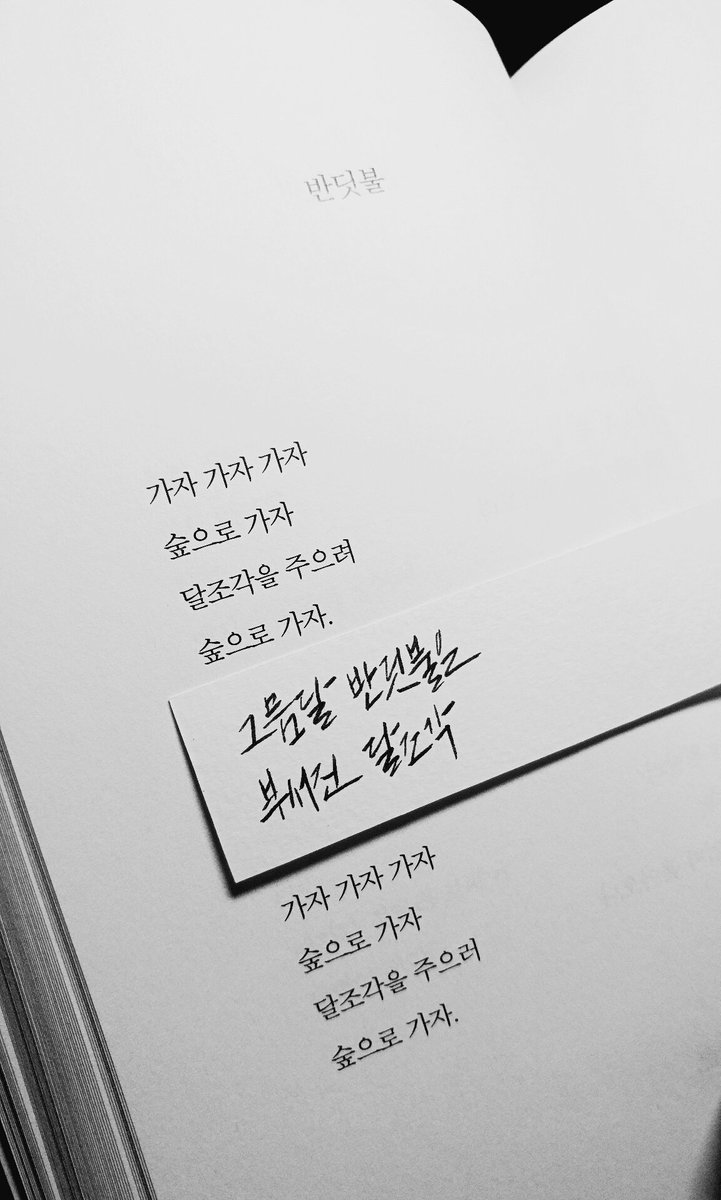 반딧불
가자 가자 가자
숲으로 가자
달조각을 주으려
숲으로 가자.
그믐달 반딧불은
부서진 달조각
가자 가자 가자
숲으로 가자
달조각을 주으러
숲으로 가자.